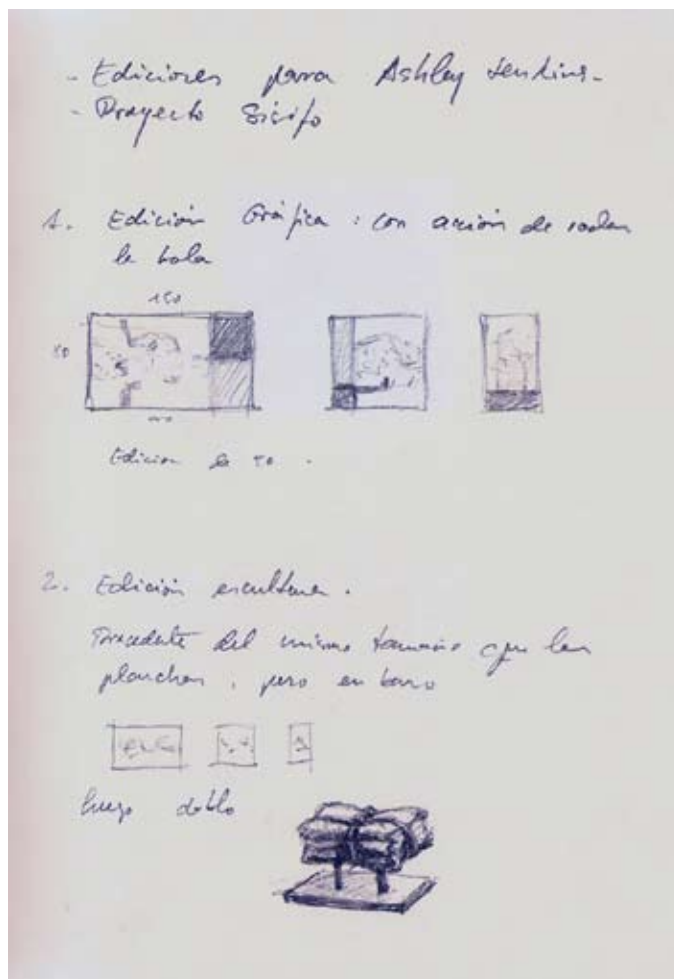 - Ediciones para Ashley
- Proyecto Sísifo
1. Edición Gráfica : con acción de rodar
la bola
150
Edicion de 50 .
2. Edición escultura .
Procedente del mismo tamaño que las
planchas , pero en barro
luego doblo